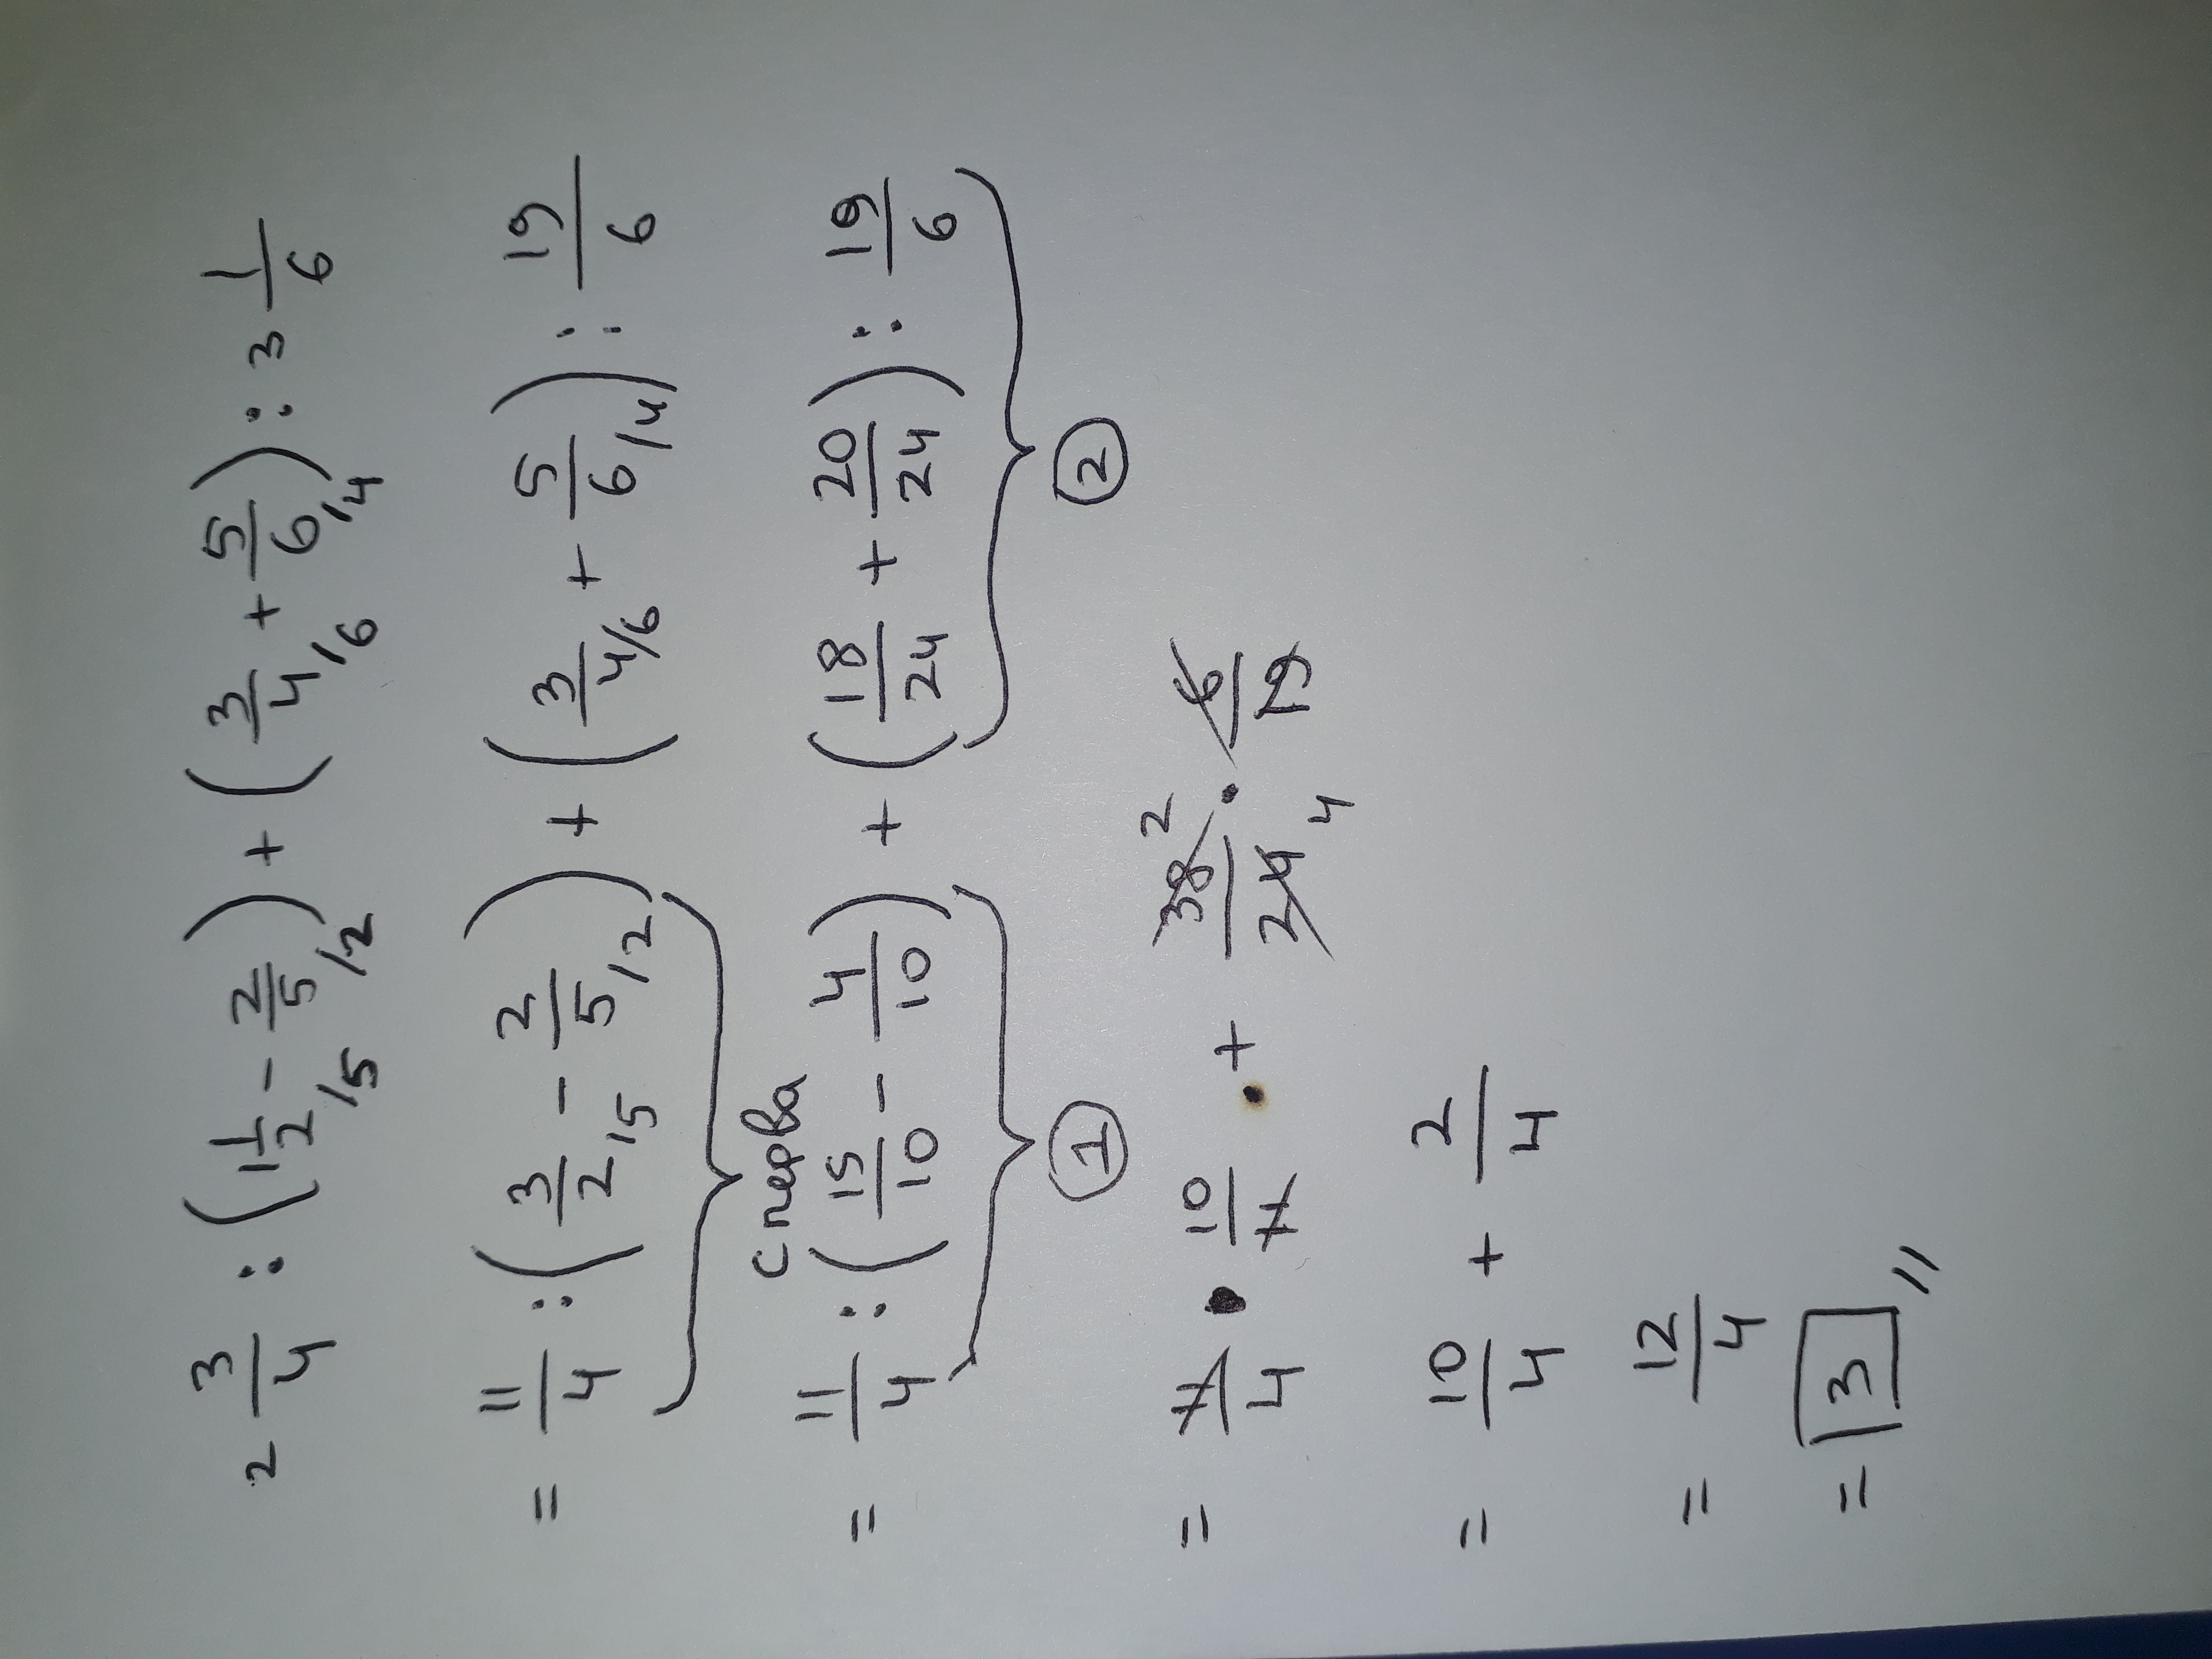 2 3/4 : (1 1/2/5 - 2/5/2) + (3/4/6 + 5/6/4) : 3 1/6
= 11/4 : (3/2/5 - 2/5/2) + (3/4/6 + 5/6/4) : 19/6
сперва
= 11/4 : (15/10 - 4/10) + (18/24 + 20/24) : 19/6
1 2
= 7/4 · 10/7 + 38/24 2/4 · 6/19
= 10/4 + 2/4
= 12/4
= 3 //